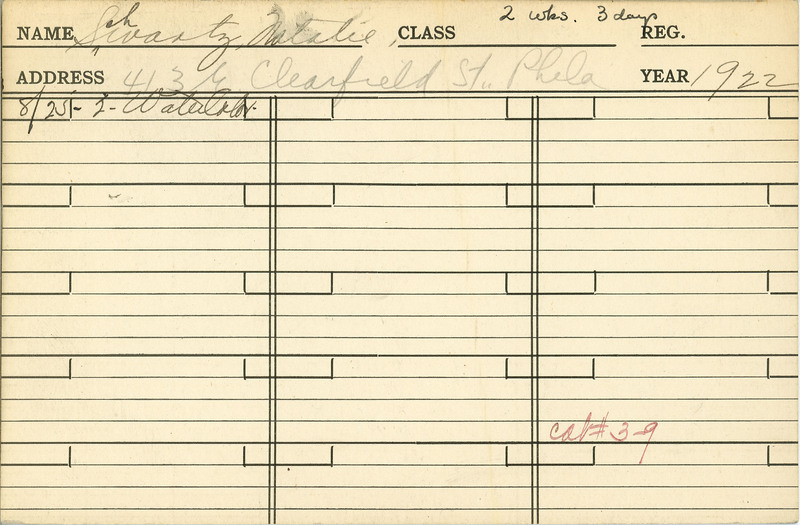 NAME Schwartz, Natalie, CLASS 2 wks. 3 days REG.
ADDRESS 413 E Clearfield St., Phila YEAR 1922
8/25 - 2 - Watercolor.
cat# 39